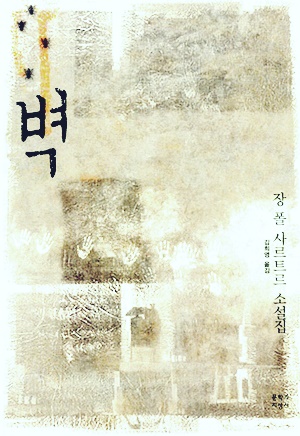 벽
장 폴 사르트르 소설집
김희영 옮김
문학과
지성사